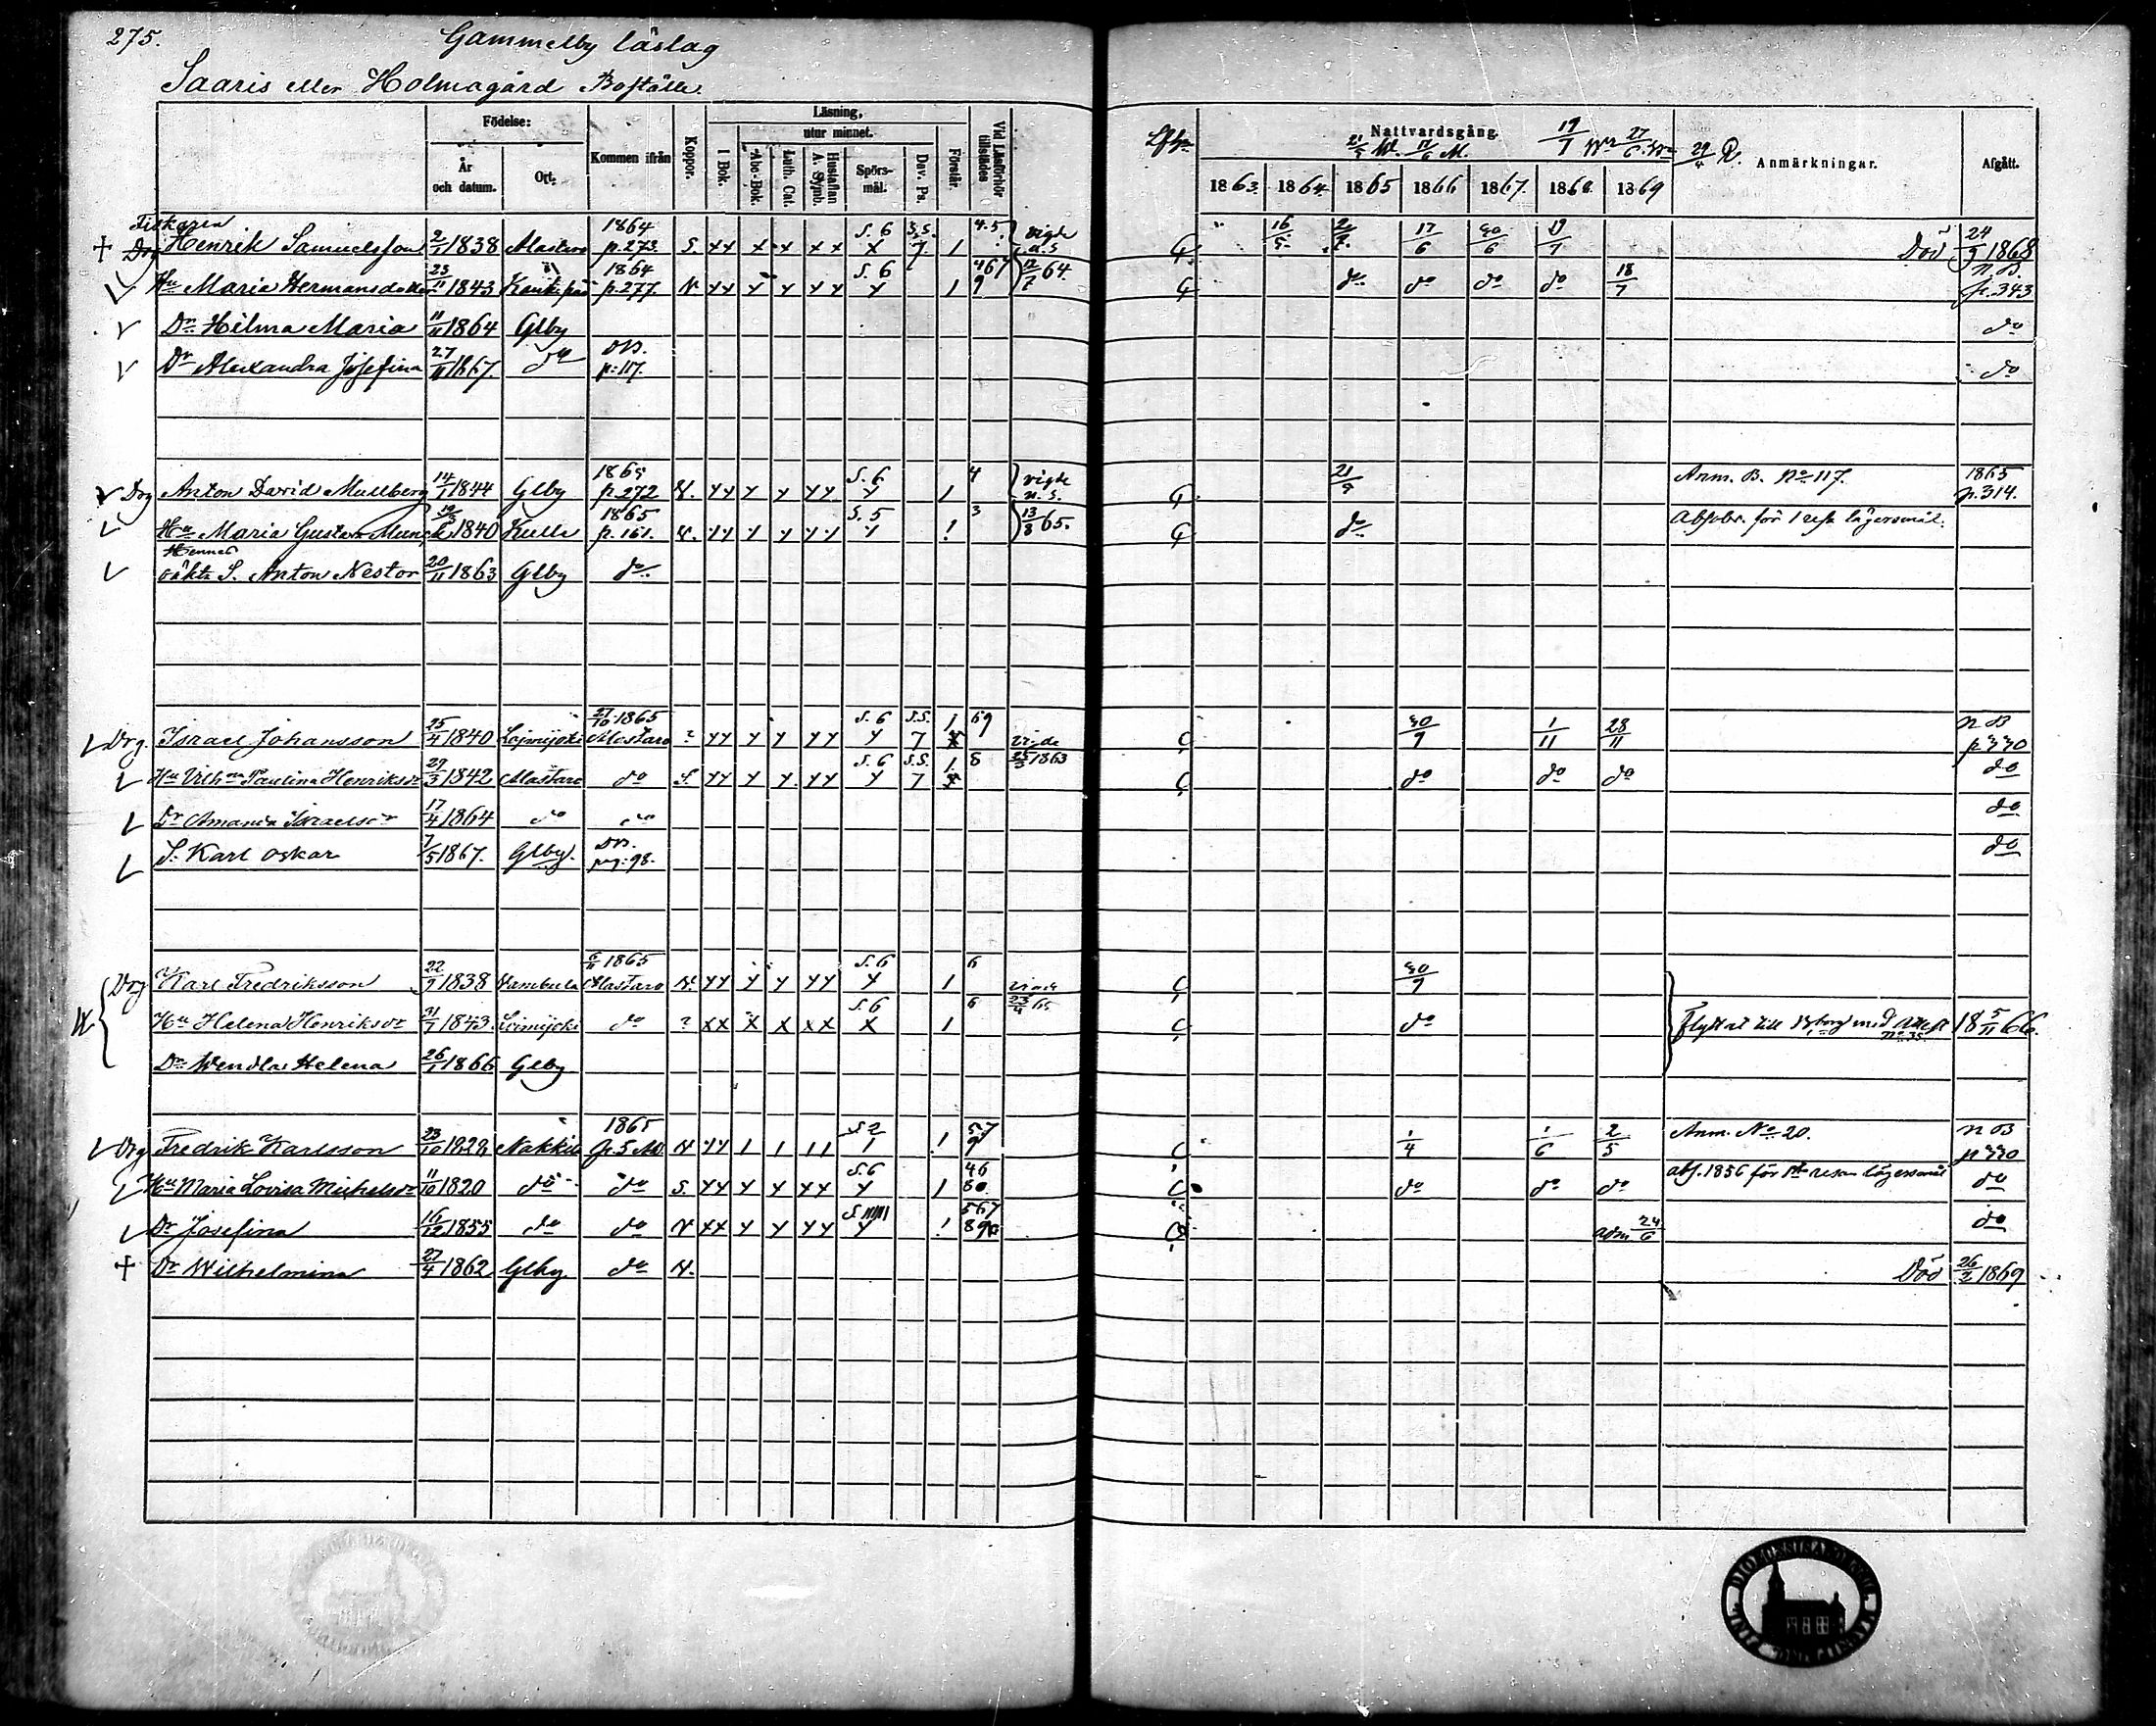 275.
Gammelby läslag
Saaris eller Holmagård Boställe.
Födelse:
År och datum.
Ort:
Kommen ifrån
Koppor.
Läsning,
utur minnet.
I Bok.
Abc-Bok.
Luth. Cat.
Hustaflan A. Symb.
Spörs-mål.
Dav. Ps.
Förstår.
Vid Läsförhör tillstädes
Nattvardsgång.
1863. 1864. 1865 1866 1867. 1868. 1869
Anmärkningar.
Afgått.
Fiskaren
Drg Henrik Samuelsson 2/1 1838 Alastaro 1864 p.273. S. xx x x xx S.6 x S.S. 7. 1 4.5. vigde 16/5 17/6 30/6 Död 24/9 1868
Hu Maria Hermansdotter 23/11 1843 1864 p.277. N yy y y yy S.6 y 1 467 9 12/7 64. do do do do 18/7 n.B. p.343
Dr Hilma Maria 11/11 1864 Glby do
Dr Alexandra Josefina 27/11 1867. do DB. p:117. do
Drg Anton David Mullberg 14/1 1844 Glby 1865 p.272 N. yy y y yy S.6 y 1 4 vigde n.s. 21/9 Anm. B. No 117. 1865 p.314.
Hu Maria Gustava Munck 1840 Kulla 1865 p.161. N. yy y y yy S.5 y 1 3 13/8 65. do Absolv. för 1 resa lägersmål.
Hennes
oäkta S. Anton Nestor 20/11 1863 Glby do
Drg. Israel Johansson 25/4 1840 Loimijoki 27/10 1865 Alastaro ? yy y y yy S.6 y S.S. 7 1 69 30/9 1/11 28/11 n B p 330
Hu Vilhna Paulina Henriksdr 29/3 1842 Alastaro do S. yy y y yy S.6 y S.S. 7 1. 8 1863 do do do do
Dr Amanda Israelsdr 17/4 1864 do do do
S. Karl Oskar 7/5 1867. Glby. DB. pag:98. do
Drg Karl Fredriksson 22/7 1838 Vambula 6/11 1865 Alastaro N. yy y y yy S.6 y 1 6 30/9
Hu Helena Henriksdr 21/7 1843. Loimijoki do ? xx x x xx S.6 x 1 6 23/4 65 do Flyttat till med Attest No 35. 18 5/11 66.
Dr Wendla Helena 26/1 1866 Glby
Drg Fredrik Karlsson 23/10 1828 Nakkila 1865 N yy 1 1 11 S2 1 1 57 9 1/4 1/6 2/5 Anm. No 20. n B p 330
Hu Maria Lovisa Michelsdr 11/10 1820 do do S. yy y y yy S.6 y 1 46 80. do do do abs. 1856 för 1sta resan lägersmål do
Dr Josefina 16/12 1855 do do N xx y y yy y 1 567 890 adm 24/6 do
Dr Wilhelmina 27/4 1862 Glby do N. Död 26/2 1869